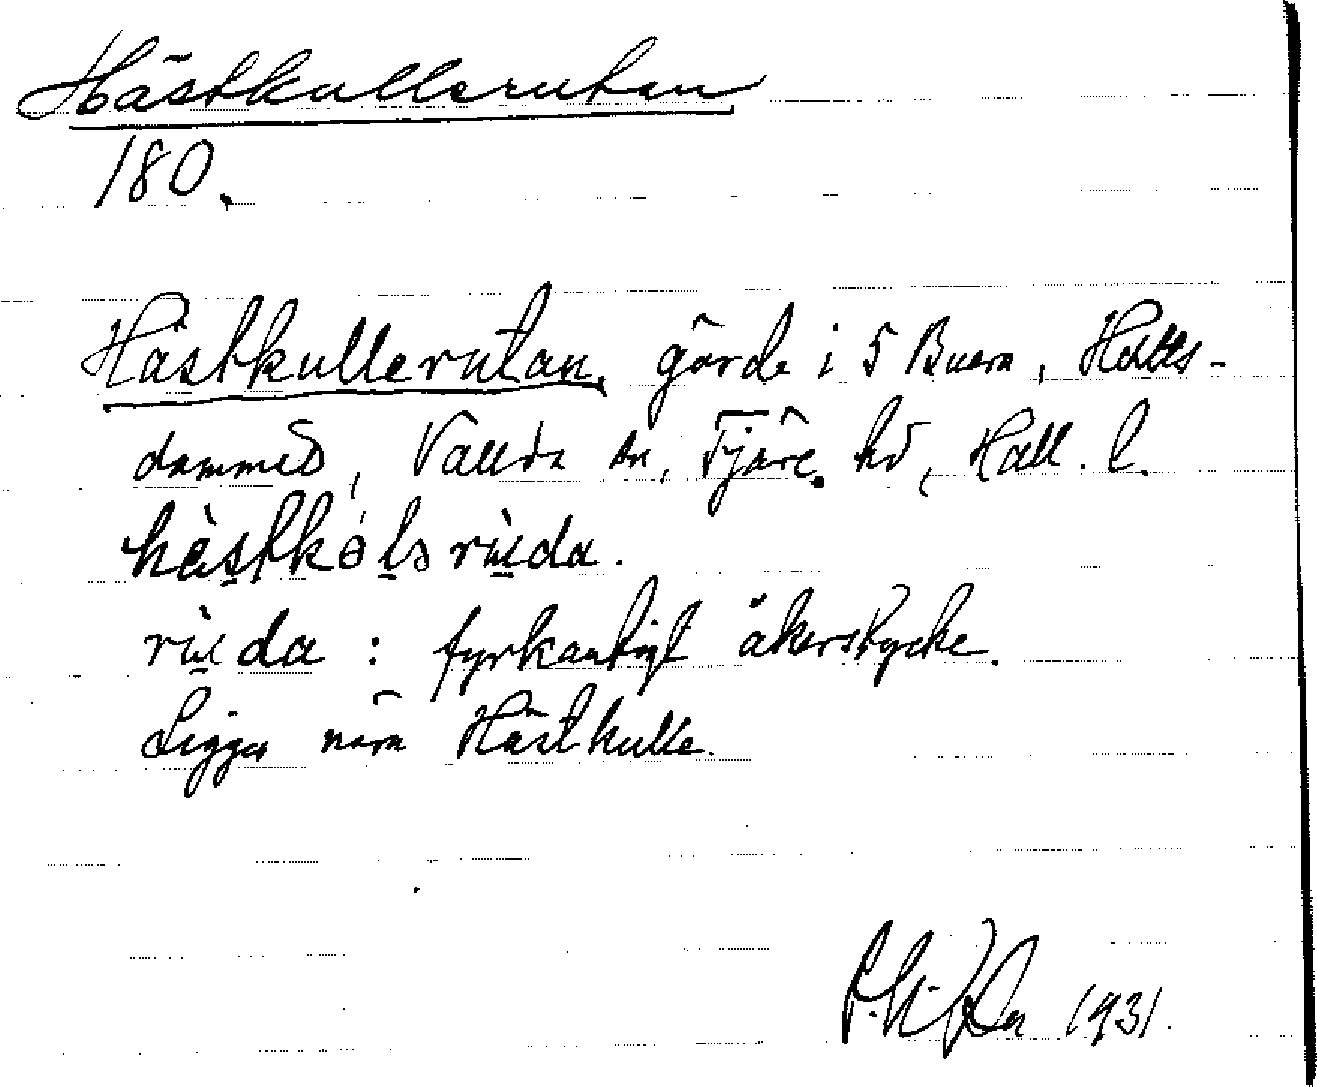 Hästkullerutan
180.
Hästkullerutan, gärde i 5 Buera, Halts-
dammen, Vallda sn, Fjäre hd, Hall. l.
hàstkɵlsrùda.
rùda : fyrkantigt åkerstycke.
Ligger nära Hästkulle.
1931.